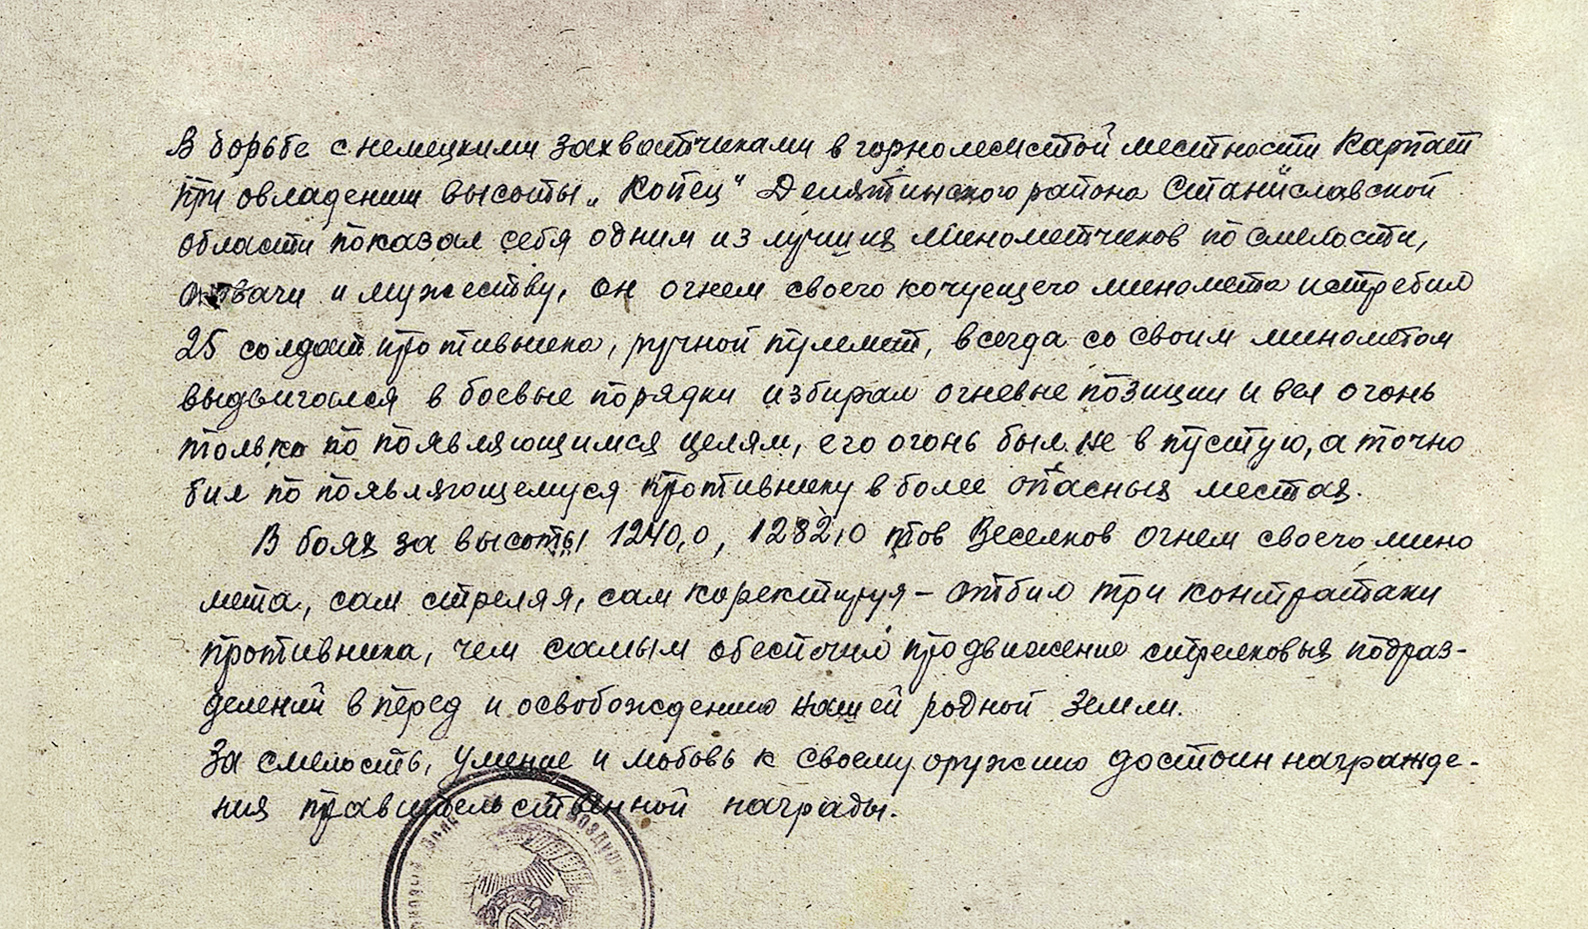 В борьбе с немецкими захватчиками в горнолесистой местности Карпат
при овладении высоты „Копец" Делятинского района Станиславской
области показал себя одним из лучших минометчиков по смелости,
отвачи и мужеству, он огнем своего кочующего миномета истребил
25 солдат противника, ручной пулемет, всегда со своим минометом
выдвигался в боевые порядки избирал огневые позиции и вел огонь
только по появляющимся целям, его огонь был не в пустую, а точно
бил по появляющемуся противнику в более опасных местах.
В боях за высоты 1240,0, 1282,0 тов Веселков огнем своего мино
мета, сам стреляя, сам коректируя – отбил три контратаки
противника, чем самым обеспечил продвижение стрелковых подраз-
делений в перед и освобождению нашей родной земли.
За смелость, умение и любовь к своему оружию достоин награжде-
ния правительственной награды.